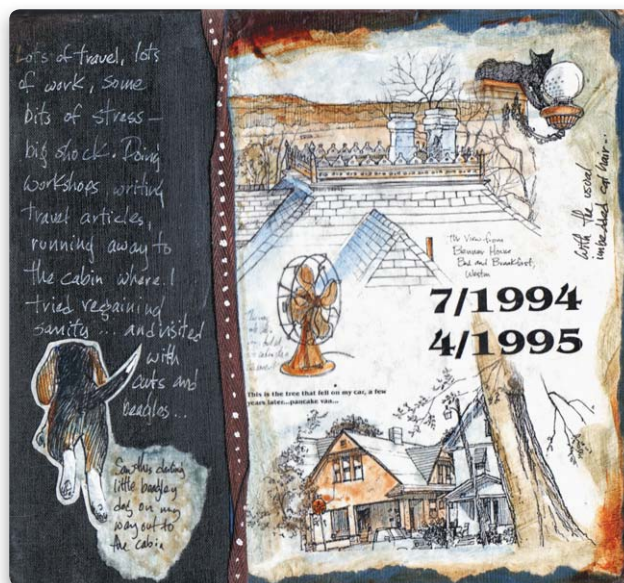 Lots of travel, lots
of work, some
bits of stress –
big shock. Doing
workshops, writing
travel articles,
running away to
the cabin where I
tried regaining
sanity ... and visited
with
cats and
beagles...
Saw this darling
little beagley
dog on my
way out to
the cabin
with the usual
imbedded cat hair...
The view from
Benner House
Bed and Breakfast,
Weston
7/1994
4/1995
This is the tree that fell on my car, a few
years later...pancake van...